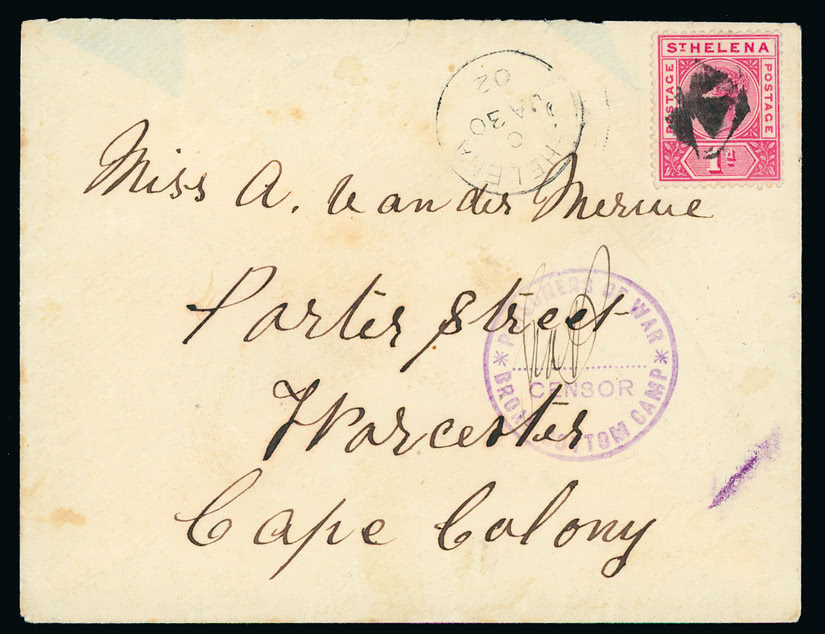 ST HELENA
POSTAGE
POSTAGE
1d
HELENA
C
JA 30
02
Miss A. Van der Merwe
Porter Street
Worcester
Cape Colony
PRISONERS OF WAR
CENSOR
BROAD BOTTOM CAMP